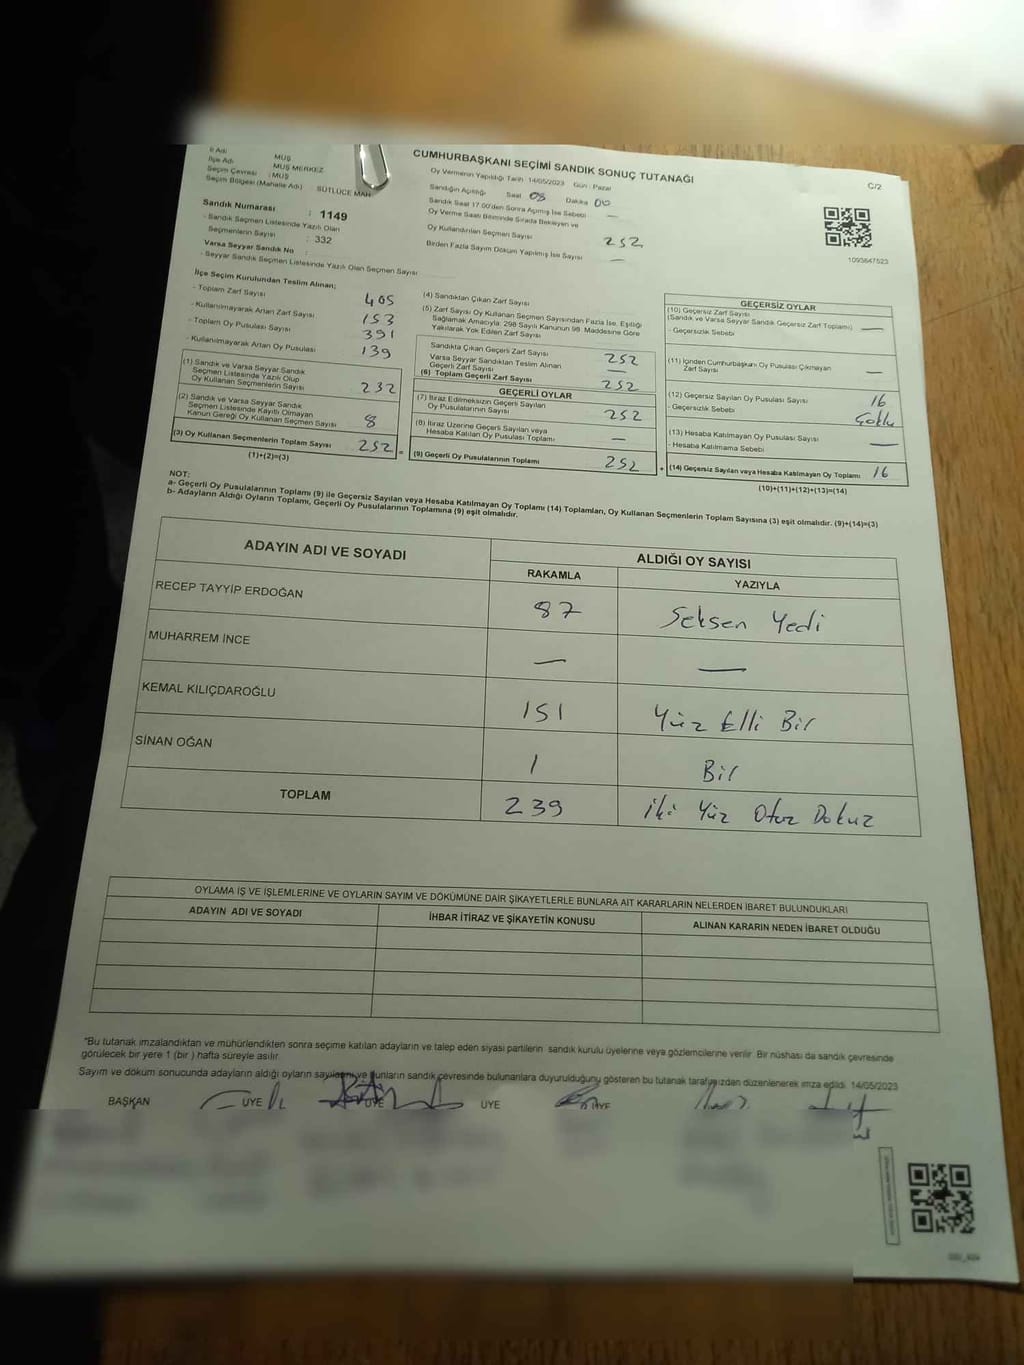 İl Adı MUŞ
İlçe Adı MUŞ MERKEZ
Seçim Çevresi : MUŞ
Seçim Bölgesi (Mahalle Adı) SÜTLÜCE MAH.
Sandık Numarası : 1149
- Sandık Seçmen Listesinde Yazılı Olan
Seçmenlerin Sayısı : 332
Varsa Seyyar Sandık No :
- Seyyar Sandık Seçmen Listesinde Yazılı Olan Seçmen Sayısı
CUMHURBAŞKANI SEÇİMİ SANDIK SONUÇ TUTANAĞI
C/2
Oy Vermenin Yapıldığı Tarih :14/05/2023 Gün : Pazar
Sandığın Açıldığı Saat 08 Dakika 00
Sandık Saat 17.00'den Sonra Açılmış İse Sebebi —
Oy Verme Saati Bitiminde Sırada Bekleyen ve
Oy Kullandırılan Seçmen Sayısı 252
Birden Fazla Sayım Döküm Yapılmış İse Sayısı —
1093647523
İlçe Seçim Kurulundan Teslim Alınan;
- Toplam Zarf Sayısı 405
- Kullanılmayarak Artan Zarf Sayısı 153
- Toplam Oy Pusulası Sayısı 391
- Kullanılmayarak Artan Oy Pusulası 139
(1) Sandık ve Varsa Seyyar Sandık
Seçmen Listesinde Yazılı Olup
Oy Kullanan Seçmenlerin Sayısı 232
(2) Sandık ve Varsa Seyyar Sandık
Seçmen Listesinde Kayıtlı Olmayan
Kanun Gereği Oy Kullanan Seçmen Sayısı 8
(3) Oy Kullanan Seçmenlerin Toplam Sayısı 252
(1)+(2)=(3)
(4) Sandıktan Çıkan Zarf Sayısı
(5) Zarf Sayısı Oy Kullanan Seçmen Sayısından Fazla İse, Eşitliği
Sağlamak Amacıyla; 298 Sayılı Kanunun 98. Maddesine Göre
Yakılarak Yok Edilen Zarf Sayısı
Sandıkta Çıkan Geçerli Zarf Sayısı 252
Varsa Seyyar Sandıktan Teslim Alınan
Geçerli Zarf Sayısı —
(6) Toplam Geçerli Zarf Sayısı 252
GEÇERLİ OYLAR
(7) İtiraz Edilmeksizin Geçerli Sayılan
Oy Pusulalarının Sayısı 252
(8) İtiraz Üzerine Geçerli Sayılan veya
Hesaba Katılan Oy Pusulası Toplamı —
= (9) Geçerli Oy Pusulalarının Toplamı 252
GEÇERSİZ OYLAR
(10) Geçersiz Zarf Sayısı
(Sandık ve Varsa Seyyar Sandık Geçersiz Zarf Toplamı) —
- Geçersizlik Sebebi
(11) İçinden Cumhurbaşkanı Oy Pusulası Çıkmayan
Zarf Sayısı —
(12) Geçersiz Sayılan Oy Pusulası Sayısı 16
- Geçersizlik Sebebi
(13) Hesaba Katılmayan Oy Pusulası Sayısı —
- Hesaba Katılmama Sebebi
+ (14) Geçersiz Sayılan veya Hesaba Katılmayan Oy Toplamı 16
(10)+(11)+(12)+(13)=(14)
NOT:
a- Geçerli Oy Pusulalarının Toplamı (9) ile Geçersiz Sayılan veya Hesaba Katılmayan Oy Toplamı (14) Toplamları, Oy Kullanan Seçmenlerin Toplam Sayısına (3) eşit olmalıdır. (9)+(14)=(3)
b- Adayların Aldığı Oyların Toplamı, Geçerli Oy Pusulalarının Toplamına (9) eşit olmalıdır.
ADAYIN ADI VE SOYADI ALDIĞI OY SAYISI
RAKAMLA YAZIYLA
RECEP TAYYİP ERDOĞAN 87 Seksen Yedi
MUHARREM İNCE — —
KEMAL KILIÇDAROĞLU 151 Yüz Elli Bir
SİNAN OĞAN 1 Bir
TOPLAM 239 iki Yüz Otuz Dokuz
OYLAMA İŞ VE İŞLEMLERİNE VE OYLARIN SAYIM VE DÖKÜMÜNE DAİR ŞİKAYETLERLE BUNLARA AİT KARARLARIN NELERDEN İBARET BULUNDUKLARI
ADAYIN ADI VE SOYADI İHBAR İTİRAZ VE ŞİKAYETİN KONUSU ALINAN KARARIN NEDEN İBARET OLDUĞU
*Bu tutanak imzalandıktan ve mühürlendikten sonra seçime katılan adayların ve talep eden siyasi partilerin sandık kurulu üyelerine veya gözlemcilerine verilir. Bir nüshası da sandık çevresinde
görülecek bir yere 1 (bir ) hafta süreyle asılır.
Sayım ve döküm sonucunda adayların aldığı oyların sayılarını ve bunların sandık çevresinde bulunanlara duyurulduğunu gösteren bu tutanak tarafımızdan düzenlenerek imza edildi. 14/05/2023
BAŞKAN ÜYE ÜYE ÜYE ÜYE